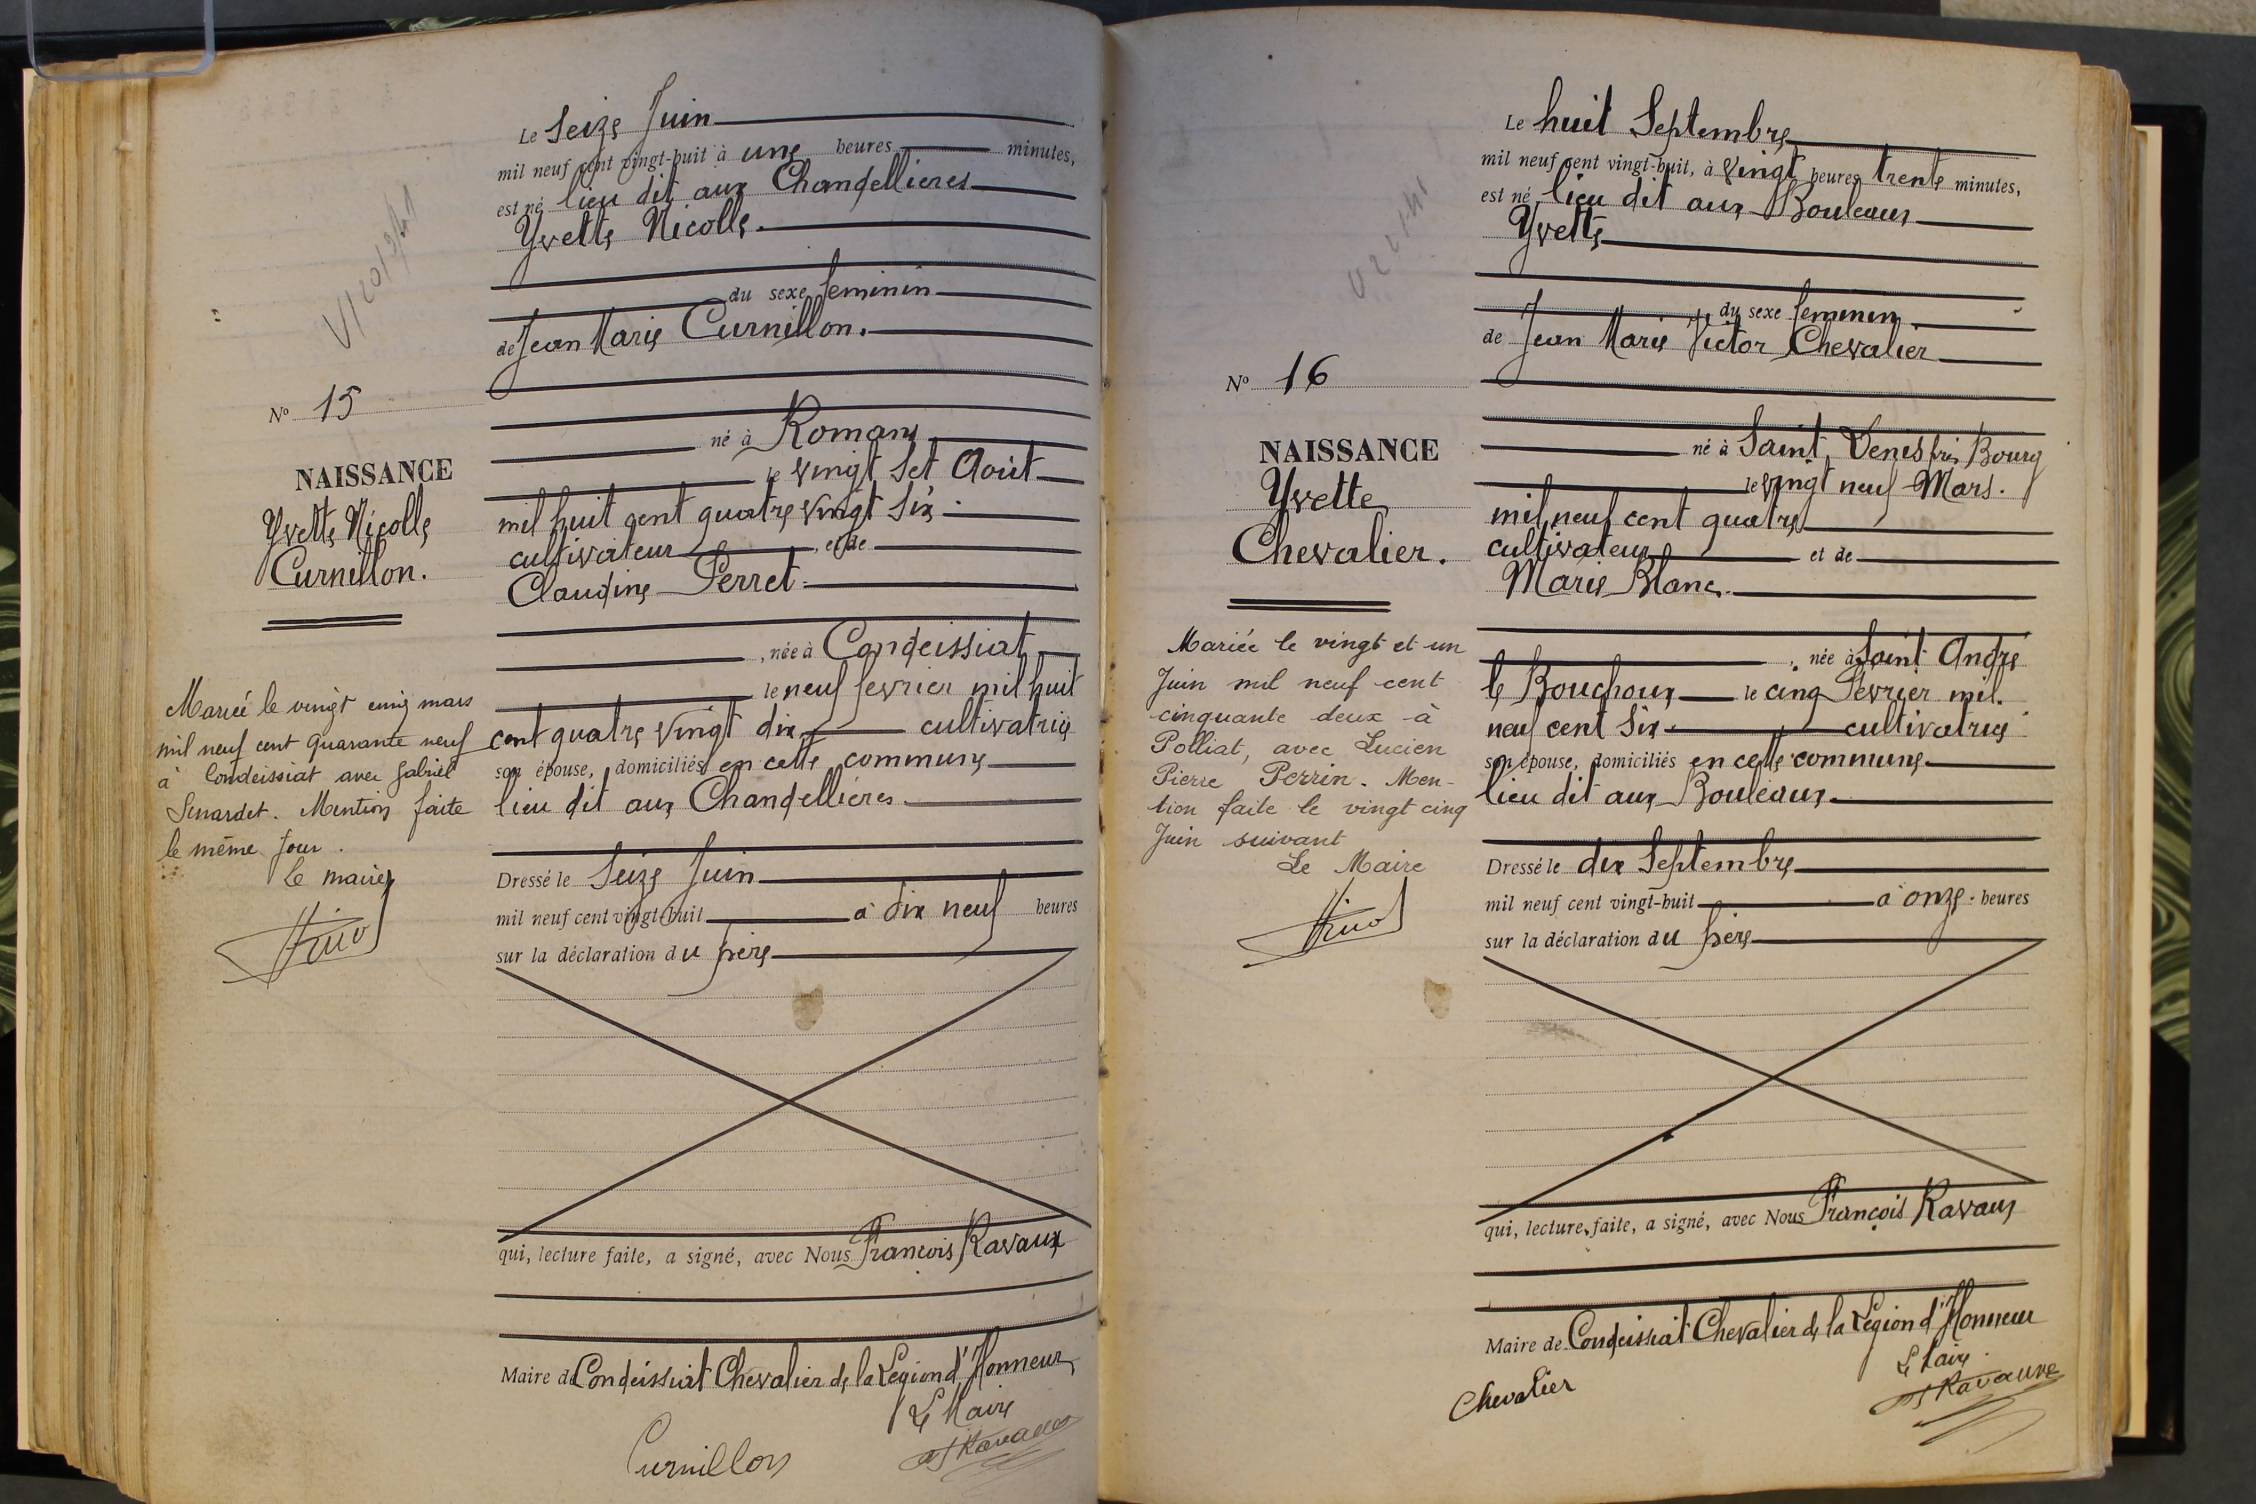 Le Seize Juin
mil neuf cent vingt-huit à une heures minutes,
est né lieu dit aux Chandellieres
Yvette Nicolle.
du sexe feminin
de Jean Marie Curnillon.
né à Romans
le vingt set Août
mil huit cent quatre vingt six
cultivateur, et de
Claudine Perret
, née à Condeissiat
le neuf fevrier mil huit
cent quatre vingt dix cultivatrice
son épouse, domiciliés en cette commune
lieu dit aux Chandellieres
Dressé le Seize Juin
mil neuf cent vingt-huit à dix neuf heures
sur la déclaration du père
qui, lecture faite, a signé, avec Nous François Ravaux
Maire de Condeissiat Chevalier de la Légion d'Honneur
Le Maire
Curnillon
No 15
NAISSANCE
Yvette Nicolle
Curnillon.
Mariée le vingt cinq mars
mil neuf cent quarante neuf
à Condeissiat avec Gabriel
Senardet. Mention faite
le même jour.
Le maire
Le huit Septembre
mil neuf cent vingt-huit, à vingt heures trente minutes,
est né lieu dit aux Bouleaux
Yvette
du sexe feminin
de Jean Marie Victor Chevalier
né à Saint Denis près Bourg
le vingt neuf Mars.
mil neuf cent quatre
cultivateur et de
Marie Blanc.
, née à Saint André
le Bouchoux le cinq Fevrier mil
neuf cent six cultivatrice
son épouse, domiciliés en cette commune
lieu dit aux Bouleaux.
Dressé le dix Septembre
mil neuf cent vingt-huit à onze heures
sur la déclaration du père
qui, lecture faite, a signé, avec Nous François Ravaux
Maire de Condeissiat Chevalier de la Légion d'Honneur
Le Maire
Chevalier
Ravaux
No 16
NAISSANCE
Yvette
Chevalier.
Mariée le vingt et un
Juin mil neuf cent
cinquante deux à
Polliat, avec Lucien
Pierre Perrin. Men-
tion faite le vingt cinq
Juin suivant
Le Maire